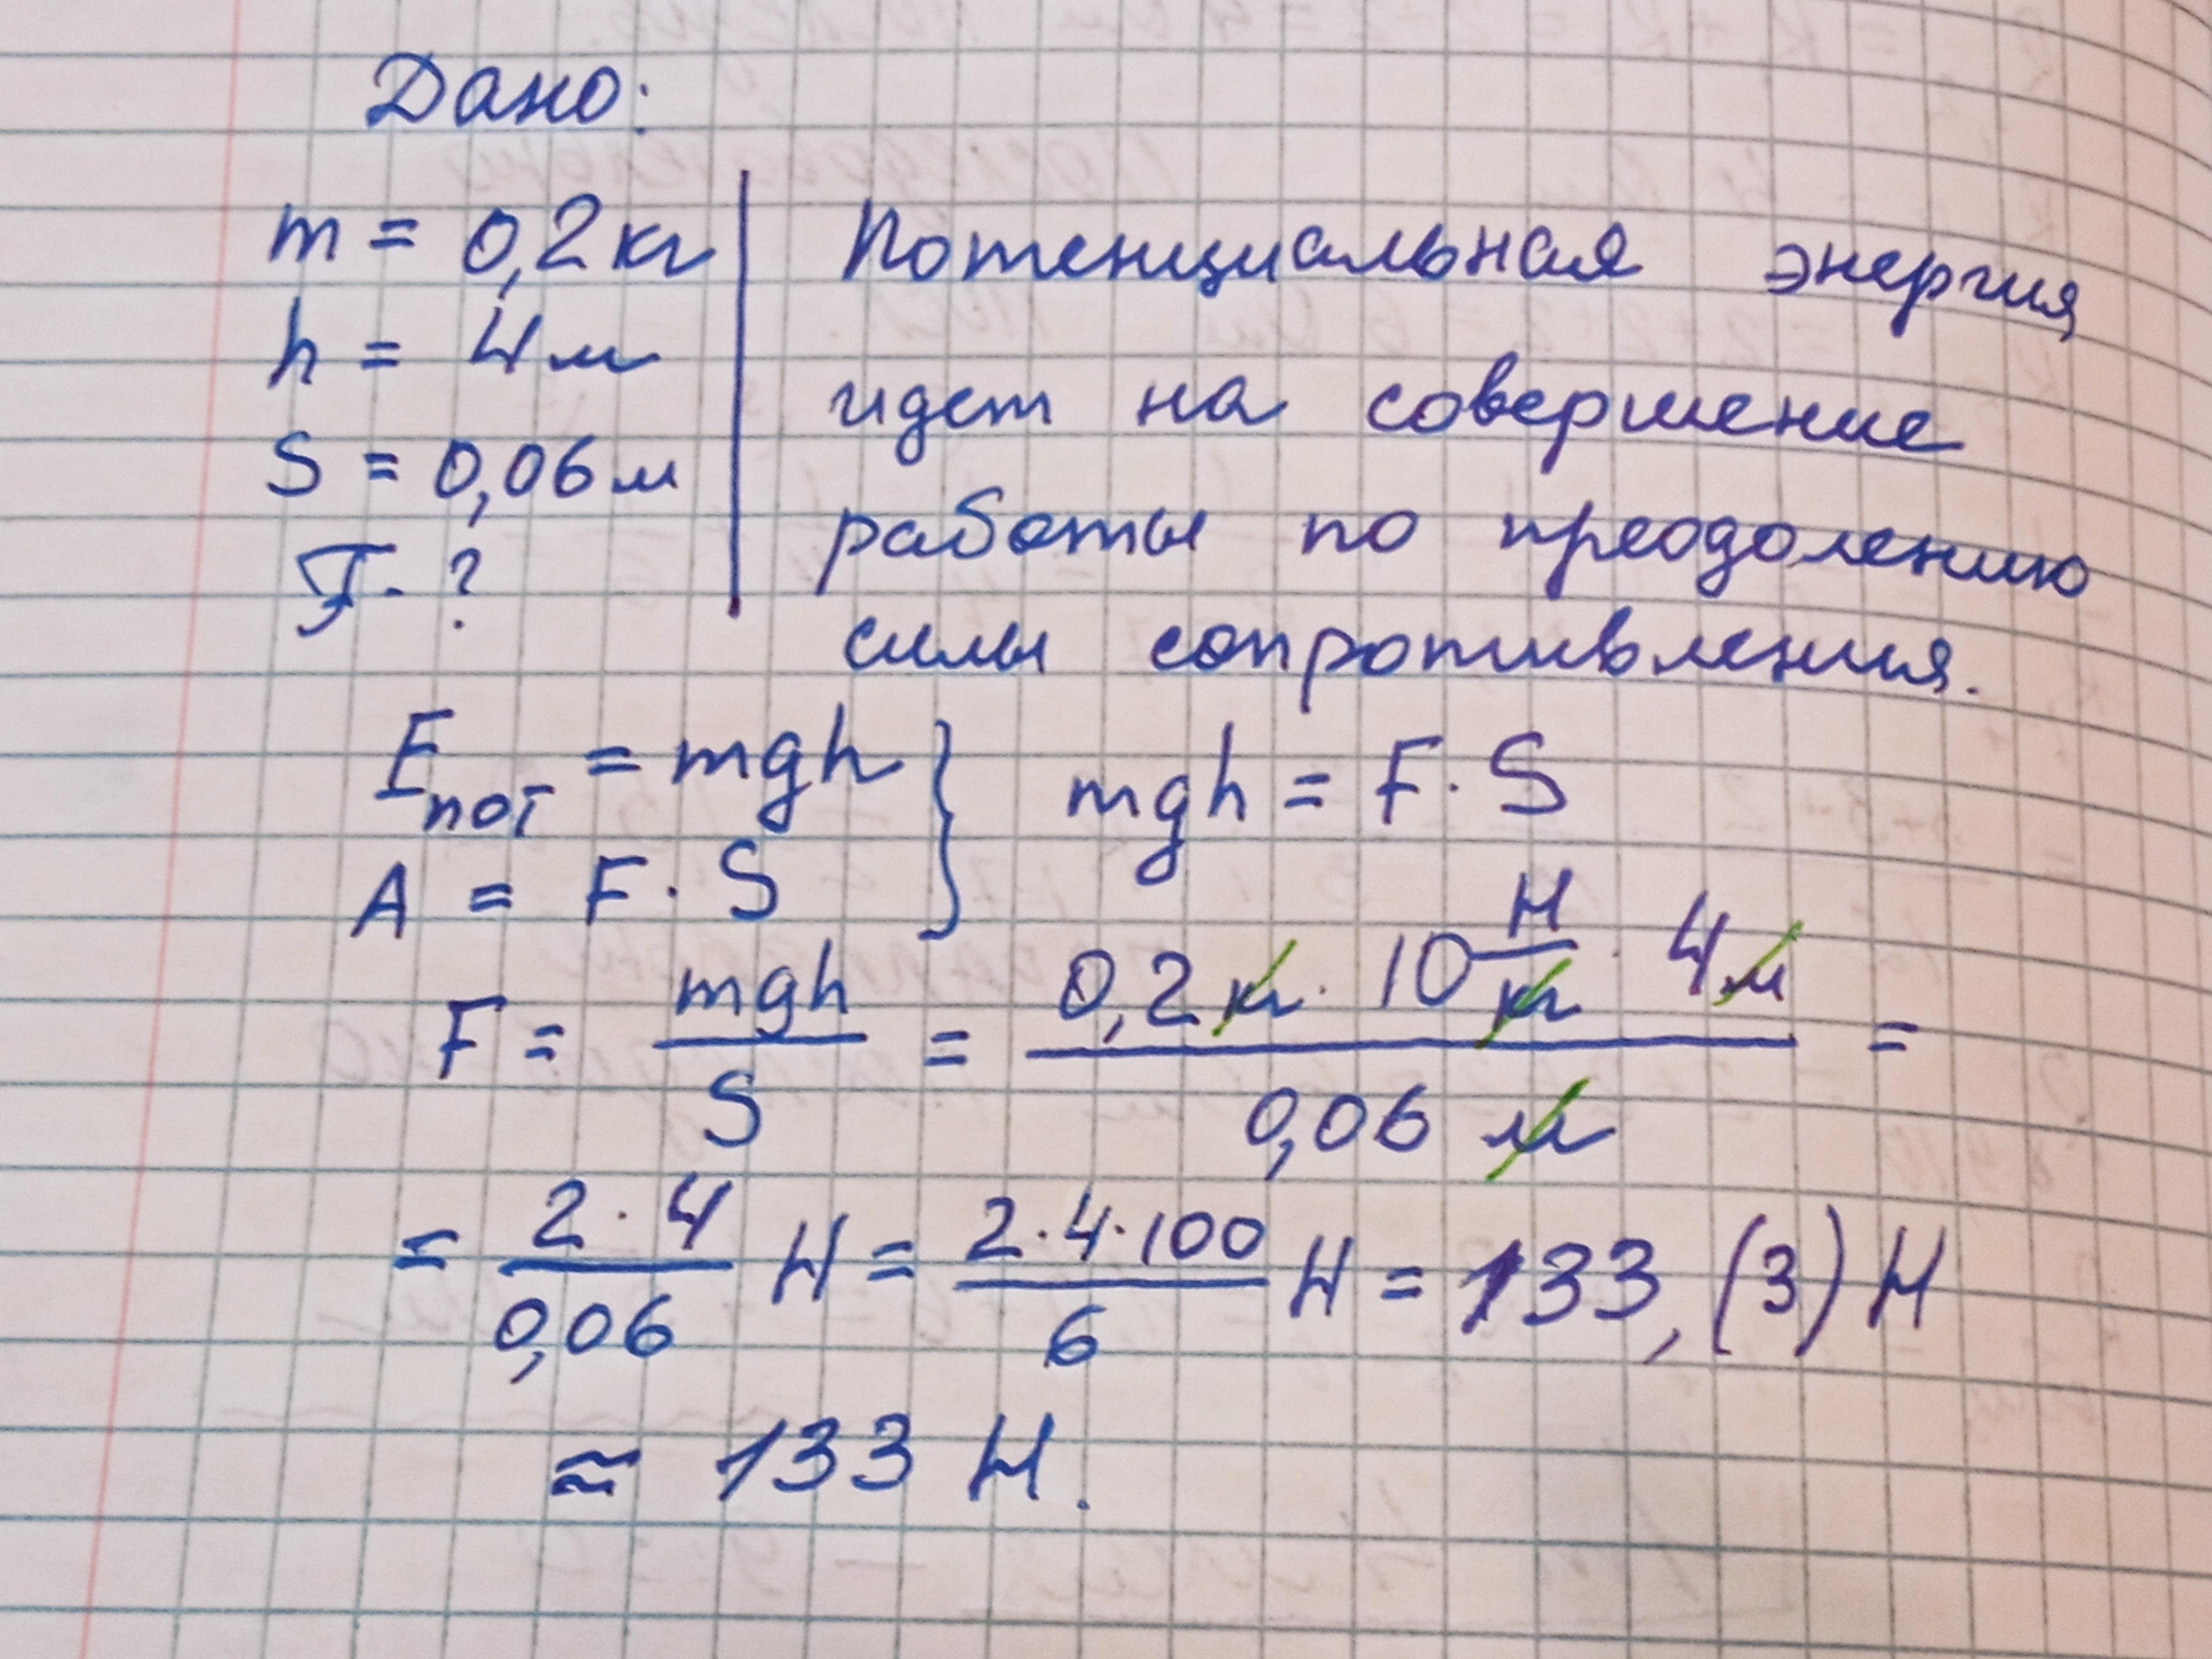 Дано:
m = 0,2 кг
h = 4 м
S = 0,06 м
F - ?
Потенциальная энергия
идет на совершение
работы по преодолению
силы сопротивления.
Eпот = mgh
A = F · S
} mgh = F · S
F = mgh / S = 0,2 кг · 10 Н/кг · 4 м / 0,06 м =
= 2 · 4 / 0,06 Н = 2 · 4 · 100 / 6 Н = 133,(3) Н
≈ 133 Н.